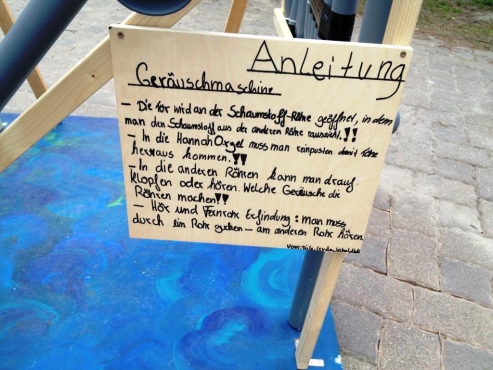 Anleitung
Geräuschmaschine
- Die Tor wird an der Schaumstoff-Röhre geöffnet, in dem
man den Schaumstoff aus der anderen Röhre rauszieht.!!
- In die Hannah Orgel muss man reinpusten damit Töne
herraus kommen.!!
- In die anderen Röhren kann man drauf
klopfen oder hören. Welche Geräusche die
Röhren machen!!
- Hör und Fernrohr Erfindung: Man muss
durch ein Rohr gucken - am anderen Rohr hören.